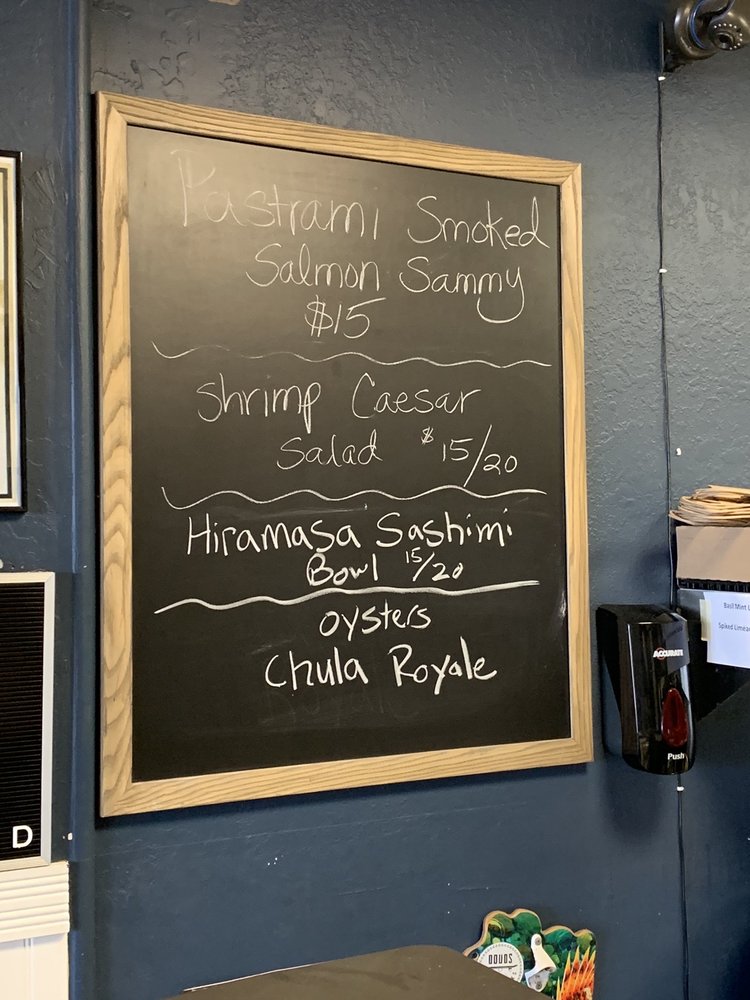 Pastrami Smoked
Salmon Sammy
$15
Shrimp Caesar
Salad $15/20
Hiramasa Sashimi
Bowl 15/20
oysters
Chula Royale
ACCURATE
Push
Basil Mint
Spiked Limea
D
DOUDS